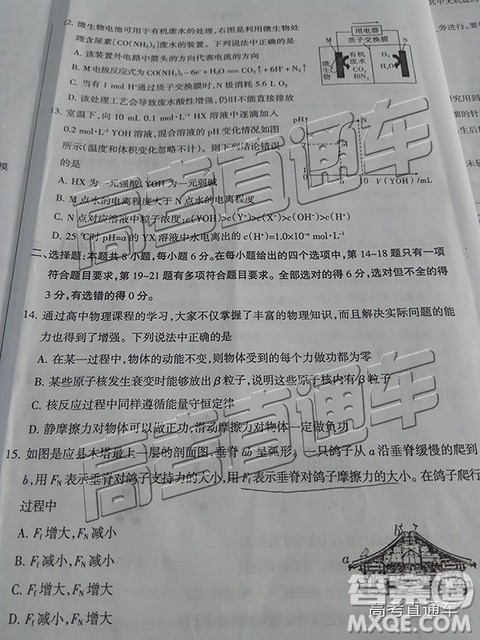 2. 微生物电池可用于有机废水的处理,右图是利用微生物处
理含尿素[CO(NH₂)₂]废水的装置。下列说法中正确的是
A. 该装置外电路中箭头的方向代表电流的方向
B. M电极反应式为CO(NH₂)₂-6e⁻+H₂O══CO₂↑+6H⁺+N₂↑
C. 当有1 mol H⁺通过质子交换膜时,N极消耗5.6 L O₂
D. 该处理工艺会导致废水酸性增强,仍旧不能直接排放
用电器
质子交换膜
微生物
有机废水
CO₂和N₂
O₂
M
N
13. 室温下,向10 mL 0.1 mol·L⁻¹ HX溶液中逐滴加入
0.2 mol·L⁻¹ YOH溶液,混合溶液的pH变化情况如图
所示(温度和体积变化忽略不计)。则下列结论错误
的是
A. HX为一元强酸,YOH为一元弱碱
B. M点水的电离程度大于N点水的电离程度
C. N点对应溶液中粒子浓度:c(YOH)>c(Y⁺)>c(X⁻)>c(OH⁻)>c(H⁺)
D. 25℃时pH=a的YX溶液中水电离出的c(H⁺)=1.0×10⁻ᵃ mol·L⁻¹
pH
V(YOH)/mL
二、选择题:本题共8小题,每小题6分。在每小题给出的四个选项中,第14~18题只有一项
符合题目要求,第19~21题有多项符合题目要求。全部选对的得6分,选对但不全的得
3分,有选错的得0分。
14. 通过高中物理课程的学习,大家不仅掌握了丰富的物理知识,而且解决实际问题的能
力也得到了增强。下列说法中正确的是
A. 在某一过程中,物体的动能不变,则物体所受到的每个力做功都为零
B. 某些原子核发生衰变时能够放出β粒子,说明这些原子核内有β粒子
C. 核反应过程中同样遵循能量守恒定律
D. 静摩擦力对物体可以做正功,滑动摩擦力对物体一定做负功
15. 如图是应县木塔最上一层的剖面图,垂脊ab呈弧形。一只鸽子从a沿垂脊缓慢的爬到
b,用Fₙ表示垂脊对鸽子支持力的大小,用Ff表示垂脊对鸽子摩擦力的大小。在鸽子爬行
过程中
A. Ff增大,Fₙ减小
B. Ff减小,Fₙ减小
C. Ff增大,Fₙ增大
D. Ff减小,Fₙ增大
a
高考直通车
高考直通车
答案圈
高考直通车
MXQE.COM